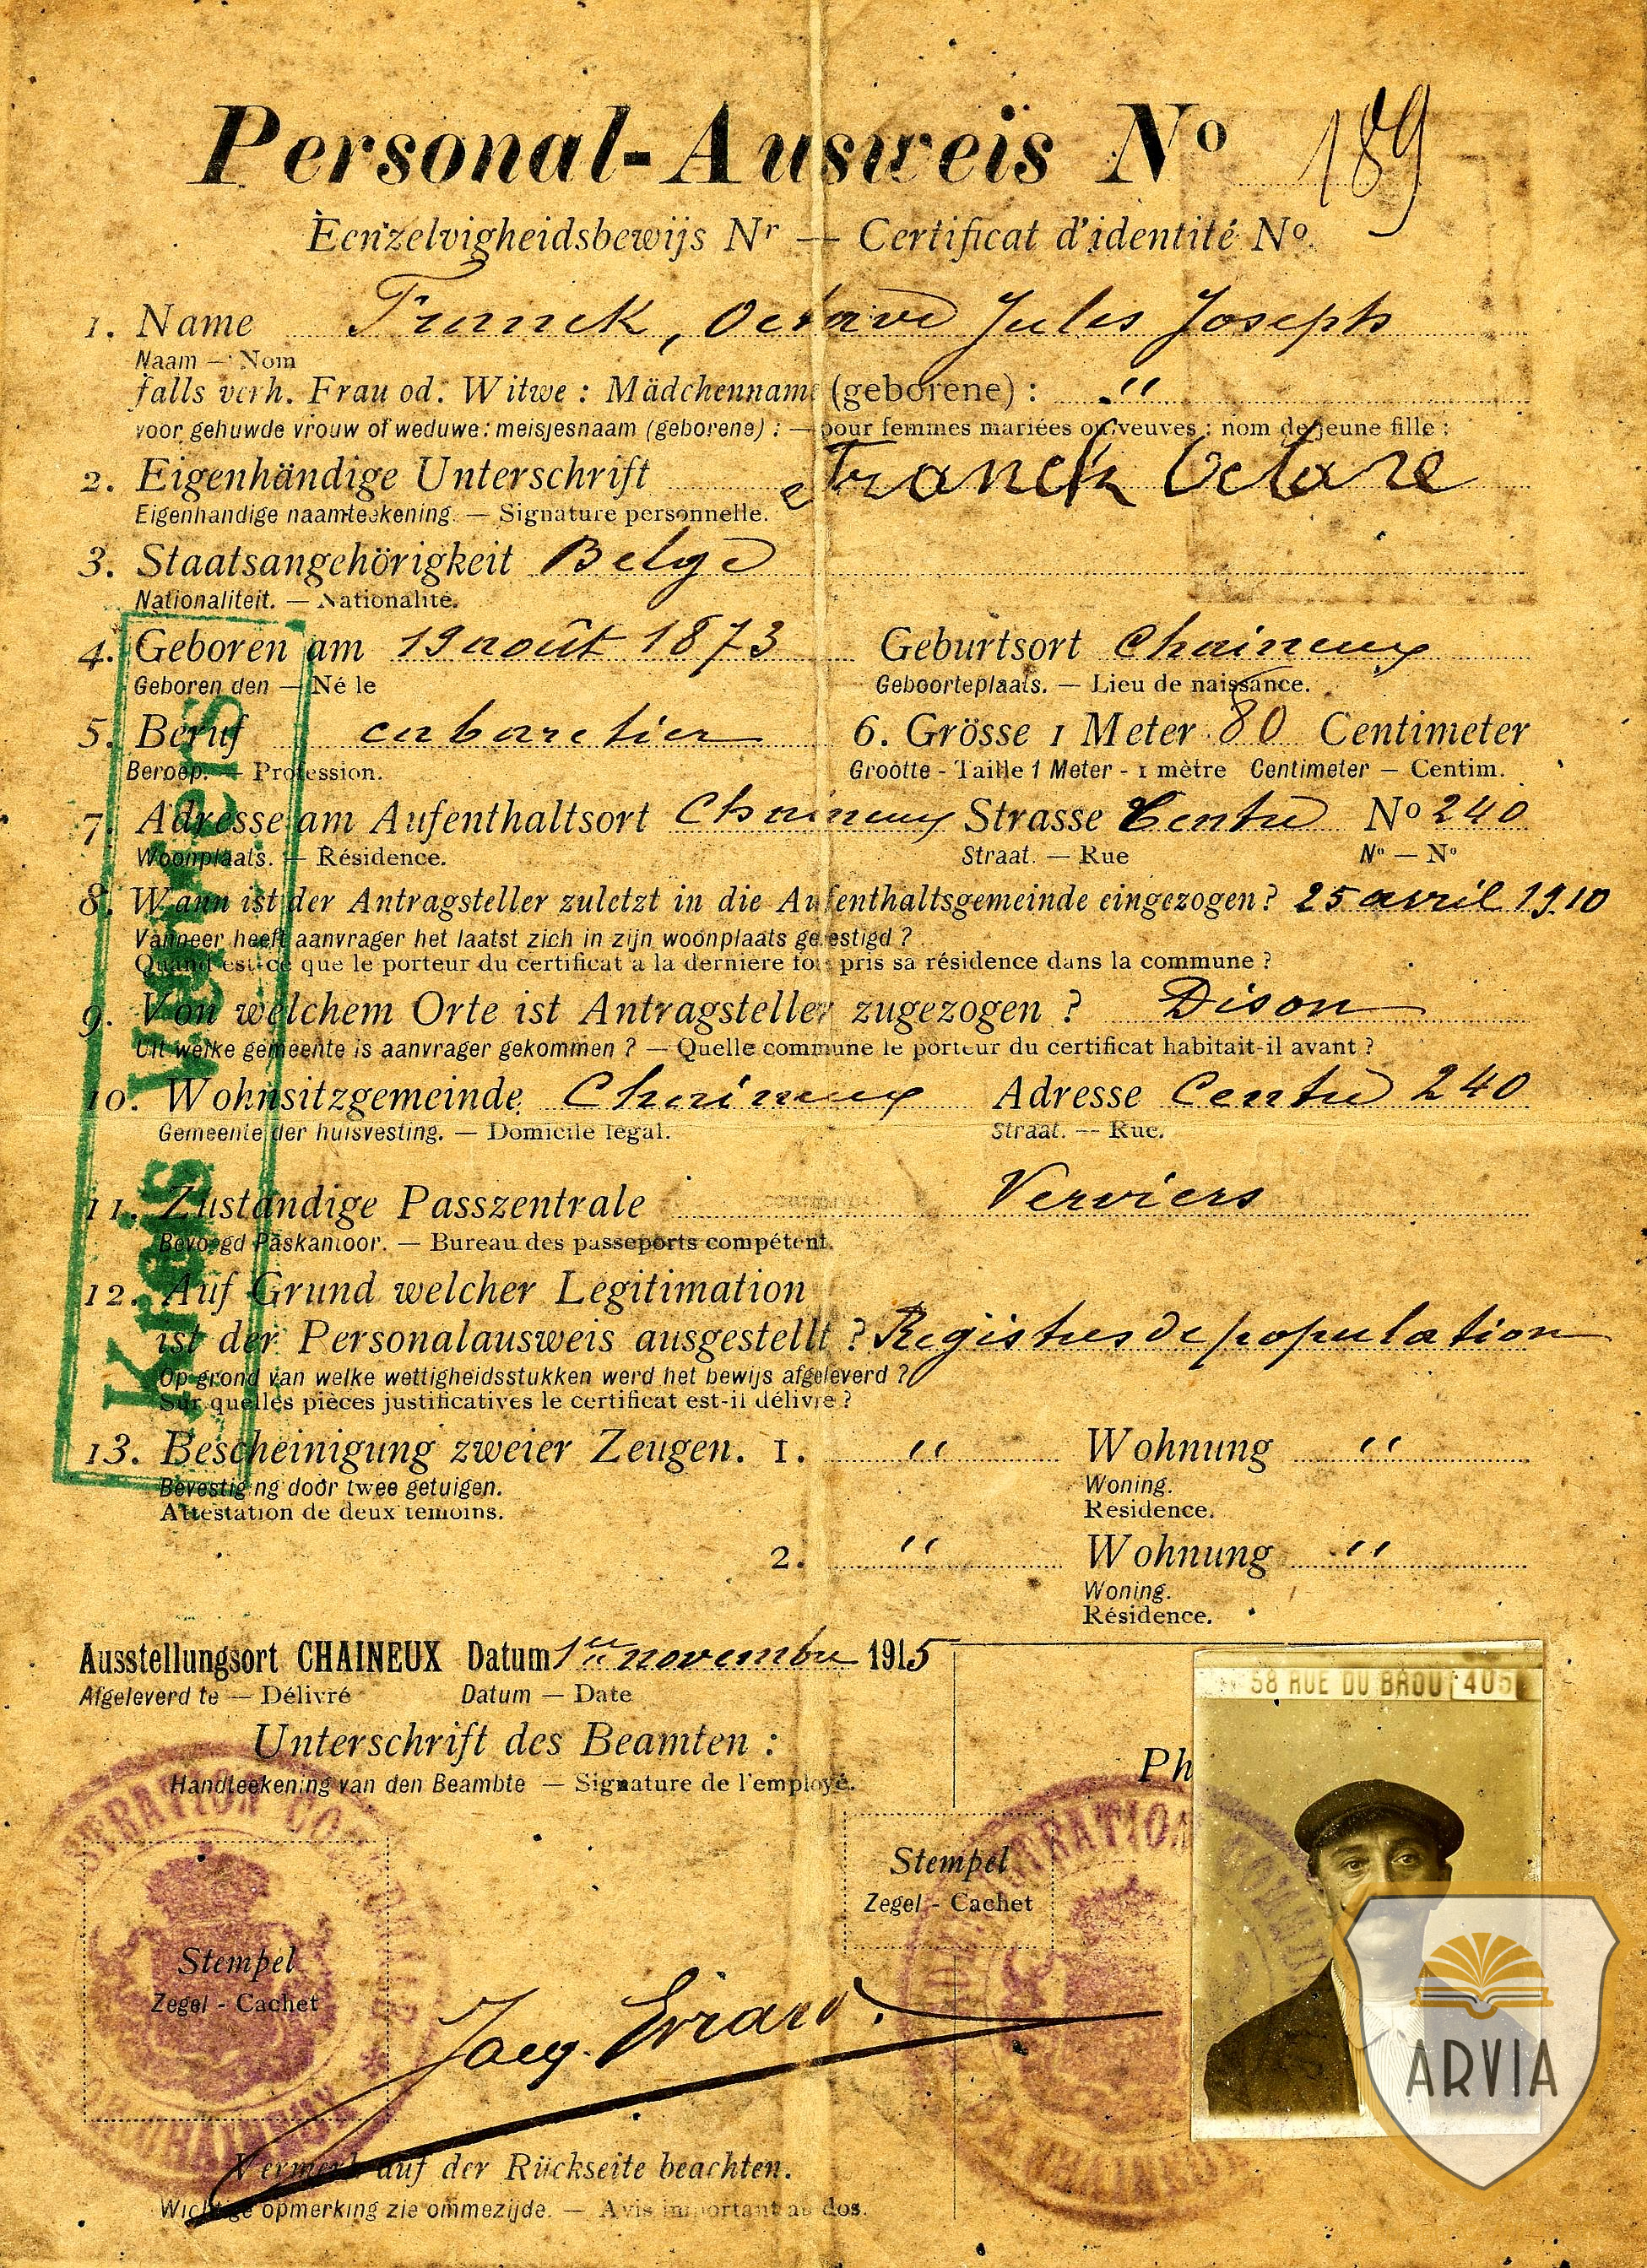 Personal-Ausweis Nº 189
Eenzelvigheidsbewijs Nr — Certificat d'identité Nº
1. Name Franck, Octave Jules Joseph
Naam — Nom
falls verh. Frau od. Witwe : Mädchenname (geborene) : "
voor gehuwde vrouw of weduwe: meisjesnaam (geborene) : — pour femmes mariées ou veuves : nom de jeune fille :
2. Eigenhändige Unterschrift Franck Octave
Eigenhandige naamteekening. — Signature personnelle.
3. Staatsangehörigkeit Belge
Nationaliteit. — Nationalité.
4. Geboren am 19 août 1873 Geburtsort Chaineux
Geboren den — Né le Geboorteplaats. — Lieu de naissance.
5. Beruf cabaretier 6. Grösse 1 Meter 80 Centimeter
Beroep. — Profession. Grootte - Taille 1 Meter - 1 mètre Centimeter — Centim.
7. Adresse am Aufenthaltsort Chaineux Strasse Centre Nº 240
Woonplaats. — Résidence. Straat. — Rue Nº — Nº
8. Wann ist der Antragsteller zuletzt in die Aufenthaltsgemeinde eingezogen? 25 avril 1910
Wanneer heeft aanvrager het laatst zich in zijn woonplaats gevestigd ?
Quand est-ce que le porteur du certificat a la derniere fois pris sa résidence dans la commune ?
9. Von welchem Orte ist Antragsteller zugezogen ? Dison
Uit welke gemeente is aanvrager gekommen ? — Quelle commune le porteur du certificat habitait-il avant ?
10. Wohnsitzgemeinde Chaineux Adresse Centre 240
Gemeente der huisvesting. — Domicile légal. Straat. — Rue.
11. Zuständige Passzentrale Verviers
Bevoegd Paskantoor. — Bureau des passeports compétent.
12. Auf Grund welcher Legitimation
ist der Personalausweis ausgestellt ? Registres de population
Op grond van welke wettigheidsstukken werd het bewijs afgeleverd ?
Sur quelles pièces justificatives le certificat est-il délivré ?
13. Bescheinigung zweier Zeugen. 1. " Wohnung "
Bevestiging door twee getuigen. Woning.
Attestation de deux témoins. Résidence.
2. " Wohnung "
Woning.
Résidence.
Kreis Verviers
Ausstellungsort CHAINEUX Datum 1er novembre 1915
Afgeleverd te — Délivré Datum — Date
58 RUE DU BROU 405
Unterschrift des Beamten :
Handteekening van den Beambte — Signature de l'employé.
Ph
Stempel
Zegel - Cachet
Stempel
Zegel - Cachet
Jacq. Evrard.
ARVIA
Vermerk auf der Rückseite beachten.
Wichtige opmerking zie ommezijde. — Avis important au dos.